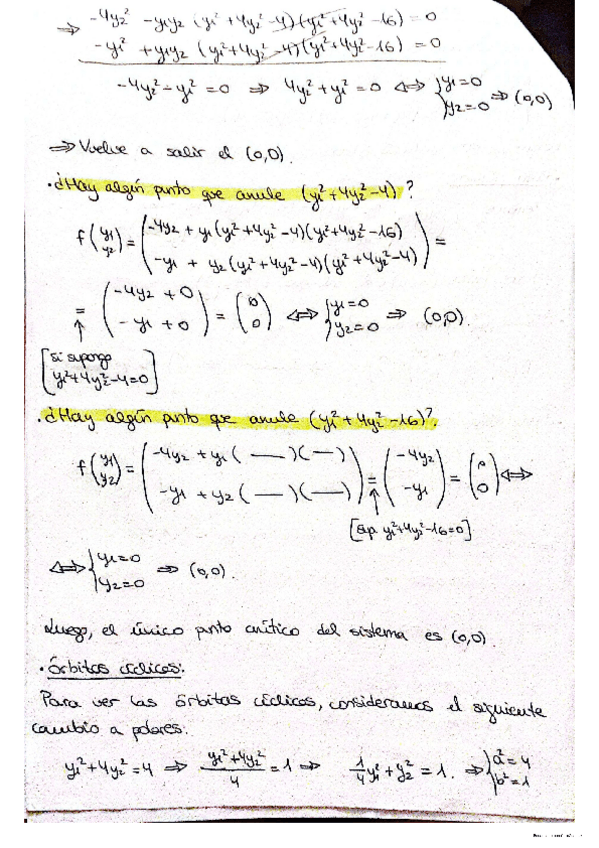 ⇒ -4y₂² - y₁y₂ (y₁² + 4y₂² - 4)(y₁² + 4y₂² - 16) = 0
-y₁² + y₁y₂ (y₁² + 4y₂² - 4)(y₁² + 4y₂² - 16) = 0
-4y₂² - y₁² = 0 ⇒ 4y₂² + y₁² = 0 ⇔ { y₁ = 0 y₂ = 0 ⇒ (0,0)
⇒ Vuelve a salir el (0,0).
· ¿Hay algún punto que anule (y₁² + 4y₂² - 4)?
f (y₁ y₂) = ( -4y₂ + y₁(y₁² + 4y₂² - 4)(y₁² + 4y₂² - 16)
-y₁ + y₂(y₁² + 4y₂² - 4)(y₁² + 4y₂² - 4) ) =
= ( -4y₂ + 0
-y₁ + 0 ) = ( 0 0 ) ⇔ { y₁ = 0 y₂ = 0 ⇒ (0,0).
[si supongo
y₁² + 4y₂² - 4 = 0]
· ¿Hay algún punto que anule (y₁² + 4y₂² - 16)?
f (y₁ y₂) = ( -4y₂ + y₁ ( — )( — )
-y₁ + y₂ ( — )( — ) ) = ( -4y₂ -y₁ ) = ( 0 0 ) ⇔
[sup. y₁² + 4y₂² - 16 = 0]
⇔ { y₁ = 0 y₂ = 0 ⇒ (0,0).
Luego, el único punto crítico del sistema es (0,0)
· Órbitas cíclicas:
Para ver las órbitas cíclicas, consideramos el siguiente
cambio a polares:
y₁² + 4y₂² = 4 ⇒ (y₁² + 4y₂²)/4 = 1 ⇒ 1/4 y₁² + y₂² = 1. ⇒ { a² = 4 b² = 1